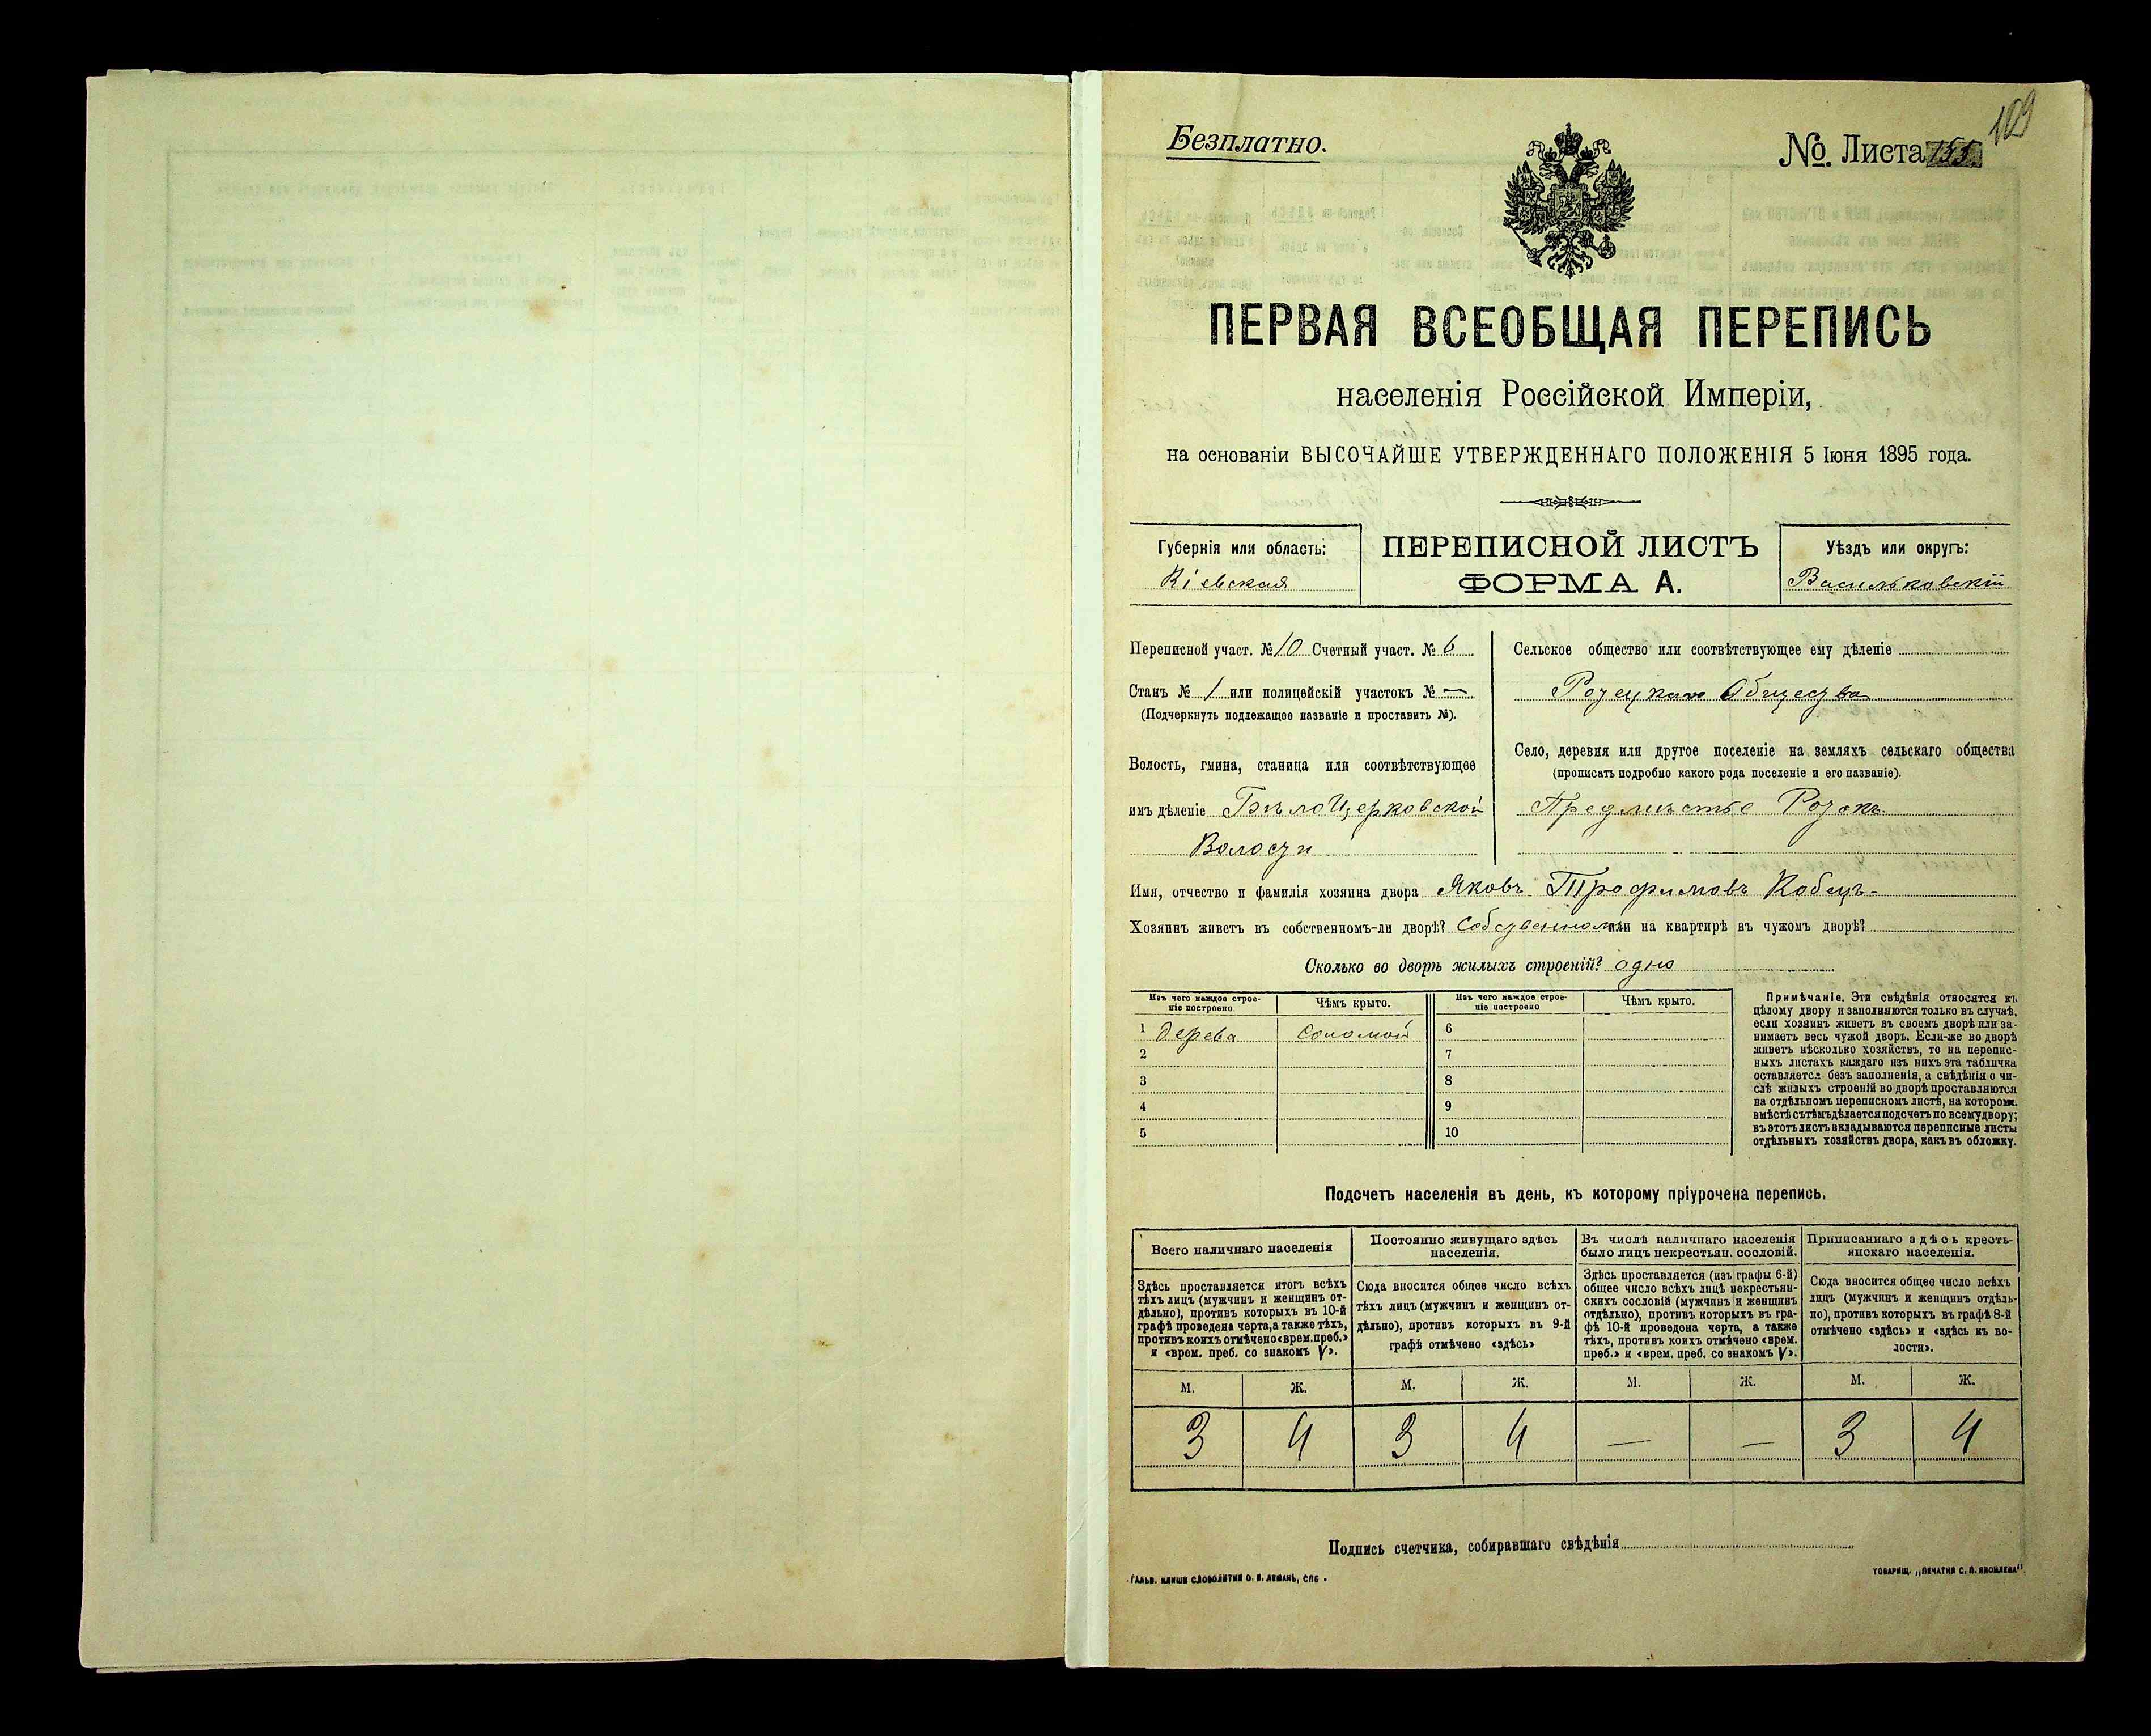 109
Безплатно.
№. Листа 155.
ПЕРВАЯ ВСЕОБЩАЯ ПЕРЕПИСЬ
населенія Россійской Имперіи,
на основаніи ВЫСОЧАЙШЕ УТВЕРЖДЕННАГО ПОЛОЖЕНІЯ 5 Іюня 1895 года.
Губернія или область:
Кіевская
ПЕРЕПИСНОЙ ЛИСТЪ
ФОРМА А.
Уѣздъ или округъ:
Васильковскій
Переписной участ. № 10 Счетный участ. № 6
Станъ № 1 или полицейскій участокъ № —
(Подчеркнуть подлежащее названіе и проставить №).
Волость, гмина, станица или соотвѣтствующее
имъ дѣленіе Бѣлоцерковской
Волости
Сельское общество или соотвѣтствующее ему дѣленіе
Ротецкаго Общества
Село, деревня или другое поселеніе на земляхъ сельскаго общества
(прописать подробно какого рода поселеніе и его названіе).
Предмѣстье Ротокъ
Имя, отчество и фамилія хозяина двора Яковъ Трофимовъ Кобецъ
Хозяинъ живетъ въ собственномъ-ли дворѣ? Собственномъ или на квартирѣ въ чужомъ дворѣ?
Сколько во дворѣ жилыхъ строеній? одно
Изъ чего каждое строе-
ніе построено
Чѣмъ крыто.
Изъ чего каждое строе-
ніе построено
Чѣмъ крыто.
1 дерева Соломой 6
2 7
3 8
4 9
5 10
Примѣчаніе. Эти свѣдѣнія относятся къ
цѣлому двору и заполняются только въ случаѣ,
если хозяинъ живетъ въ своемъ дворѣ или за-
нимаетъ весь чужой дворъ. Если-же во дворѣ
живетъ нѣсколько хозяйствъ, то на перепис-
ныхъ листахъ каждаго изъ нихъ эта табличка
оставляется безъ заполненія, а свѣдѣнія о чи-
слѣ жилыхъ строеній во дворѣ проставляются
на отдѣльномъ переписномъ листѣ, на которомъ
вмѣстѣ съ тѣмъ дѣлается подсчетъ по всему двору;
въ этотъ листъ вкладываются переписные листы
отдѣльныхъ хозяйствъ двора, какъ въ обложку.
Подсчетъ населенія въ день, къ которому пріурочена перепись.
Всего наличнаго населенія
Здѣсь проставляется итогъ всѣхъ
тѣхъ лицъ (мужчинъ и женщинъ от-
дѣльно), противъ которыхъ въ 10-й
графѣ проведена черта, а также тѣхъ,
противъ коихъ отмѣчено «врем. преб.»
и «врем. преб. со знакомъ V».
Постоянно живущаго здѣсь
населенія.
Сюда вносится общее число всѣхъ
тѣхъ лицъ (мужчинъ и женщинъ от-
дѣльно), противъ которыхъ въ 9-й
графѣ отмѣчено «здѣсь»
Въ числѣ наличнаго населенія
было лицъ некрестьян. сословій.
Здѣсь проставляется (изъ графы 6-й)
общее число всѣхъ лицъ некрестьян-
скихъ сословій (мужчинъ и женщинъ
отдѣльно), противъ которыхъ въ гра-
фѣ 10-й проведена черта, а также
тѣхъ, противъ коихъ отмѣчено «врем.
преб.» и «врем. преб. со знакомъ V».
Приписаннаго здѣсь кресть-
янскаго населенія.
Сюда вносится общее число всѣхъ
лицъ (мужчинъ и женщинъ отдѣль-
но), противъ которыхъ въ графѣ 8-й
отмѣчено «здѣсь» и «здѣсь къ во-
лости».
М. Ж. М. Ж. М. Ж. М. Ж.
3 4 3 4 — — 3 4
Подпись счетчика, собиравшаго свѣдѣнія
ГАЛЬВ. КЛИШЕ СЛОВОЛИТНИ О. И. ЛЕМАНЪ, СПБ.
ТОВАРИЩ. „ПЕЧАТНЯ С. П. ЯКОВЛЕВА"